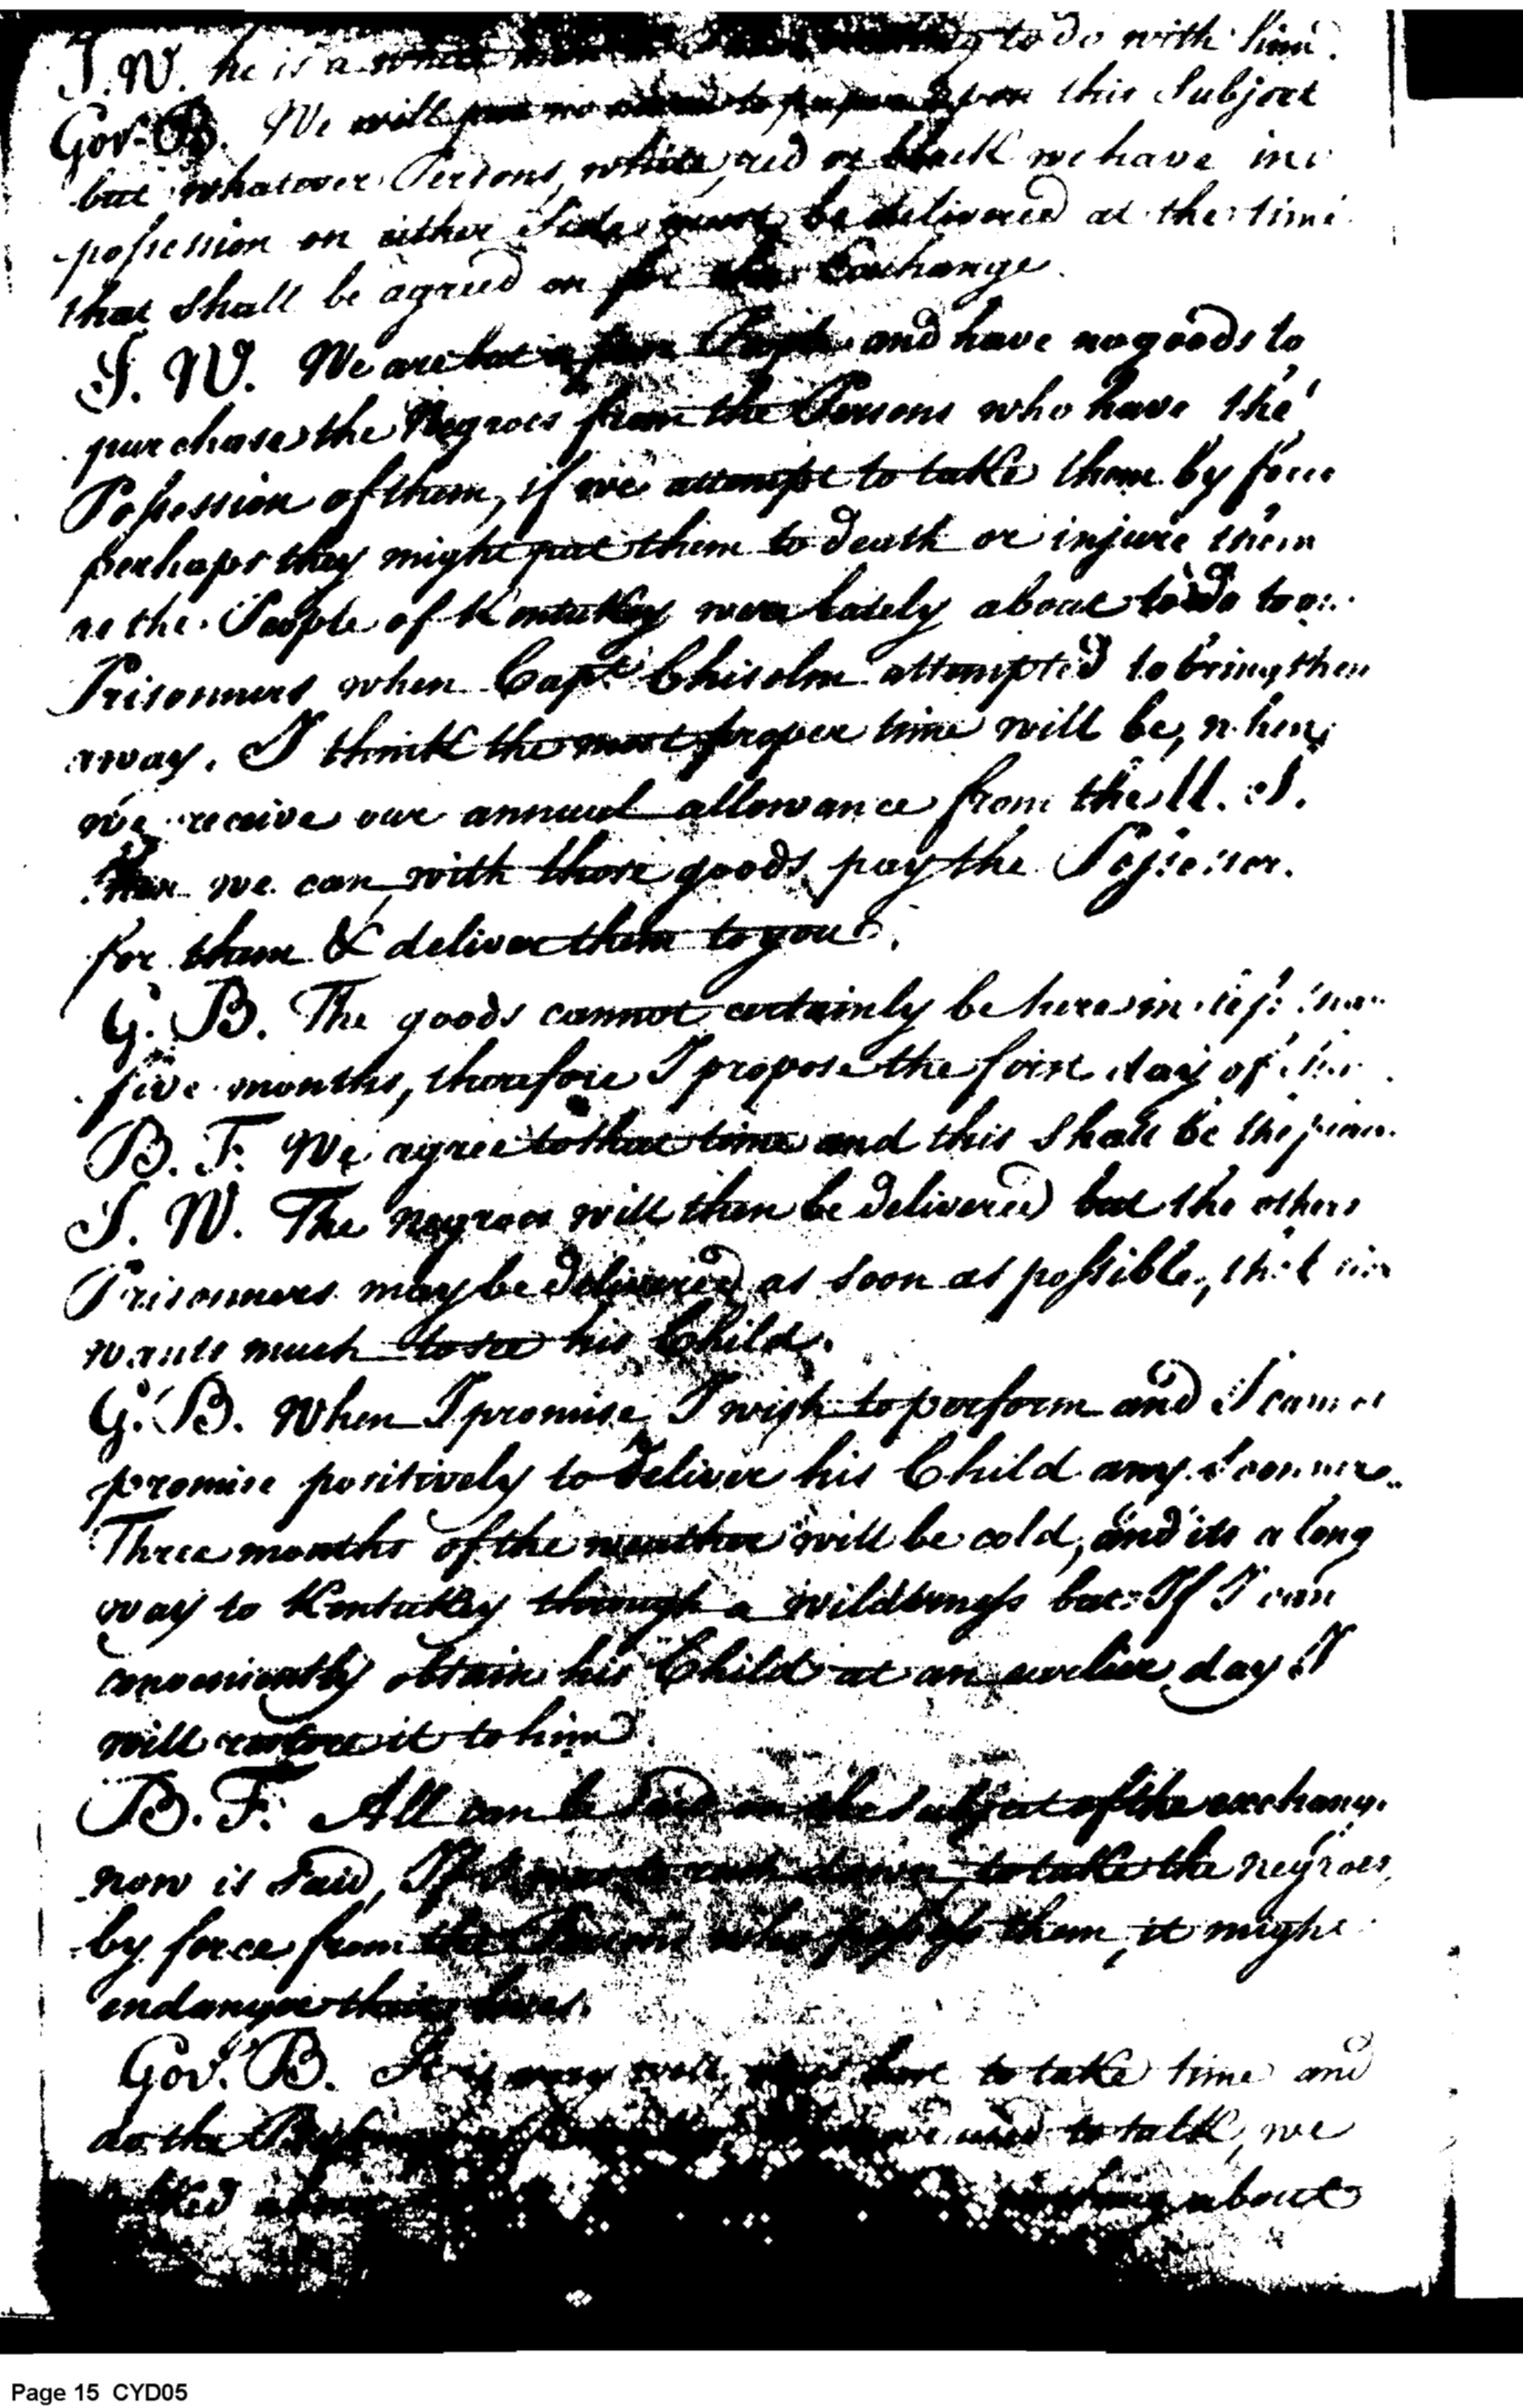 J. W. he is a white man to do with him.
Gov.r B. We will upon this Subject
but whatever Persons, white, red or black we have in
possession on either Side, must be delivered at the time
that shall be agreed on for the Exchange.
J. W. We are but a poor People and have no goods to
purchase the Negroes from the Persons who have the
Possession of them, if we attempt to take them by force
perhaps they might put them to death or injure them
as the People of Kentukey were lately about to do to
Prisonners when Capt. Chisolm attempted to bring them
away. I think the most proper time will be, when
we receive our annual allowance from the U. S.
Then we can, with those goods, pay the Possessor.
for them & deliver them to you.
G. B. The goods cannot certainly be here in less than
five months, therefore I propose the first day of
B. F. We agree to that time and this shall be the
J. W. The Negroes will then be delivered but the others
Prisonners may be delivered as soon as possible, that
wants much to see his Child.
G. B. When I promise, I wish to perform and I cannot
promise positively to deliver his Child any Sooner.
Three months of the weather will be cold, and its a long
way to Kentukey through a wilderness but If I can
conveniently obtain his Child at an earlier day I
will restore it to him.
B. F. All can be Said on the Subject of the exchange
now is Said, If to take the negroes
by force from the Persons who possess them, it might
endanger their lives.
Gov.r B. It is very well to take time and
do the to talk, we
about